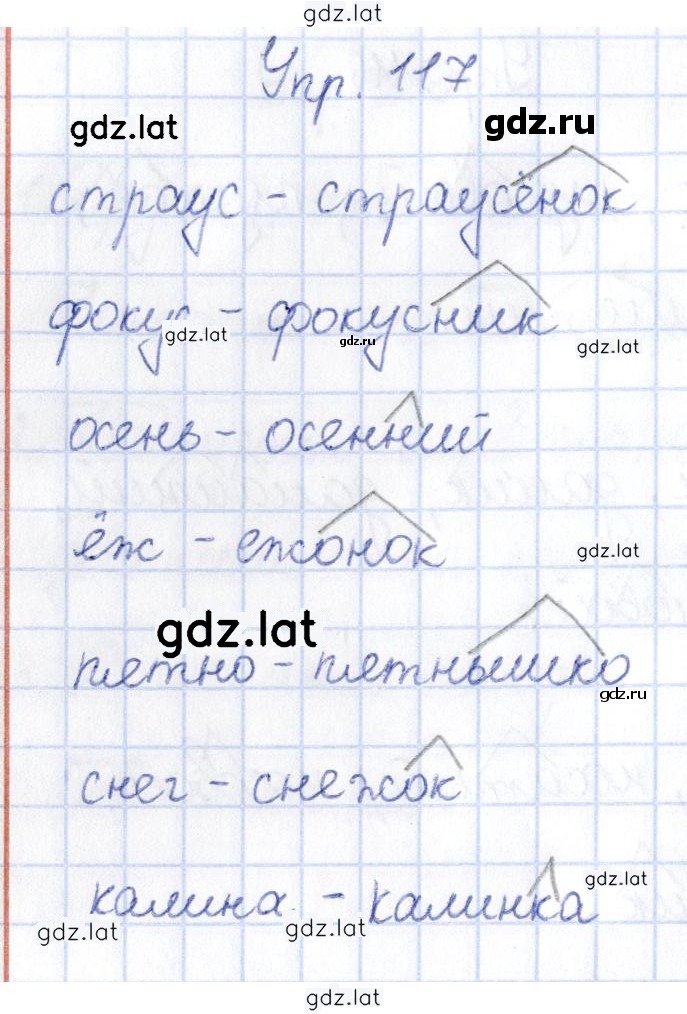 gdz.lat
Упр. 117
gdz.lat
gdz.ru
страус - страусёнок
фокус - фокусник
gdz.lat
gdz.ru
gdz.lat
осень - осенний
ёж - ежонок
gdz.lat
gdz.lat
пятно - пятнышко
gdz.ru
снег - снежок
gdz.lat
калина - калинка
gdz.lat
gdz.lat
gdz.lat